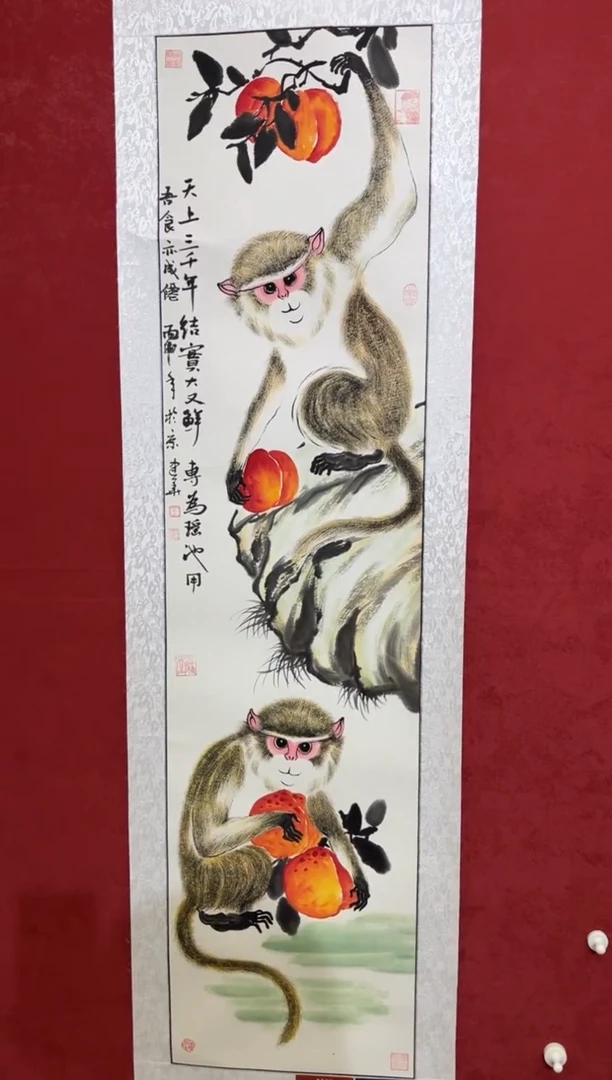 天上三千年 结實大又鲜 專為瑶池用
吾食亦成僊 丙申年 於京 建華